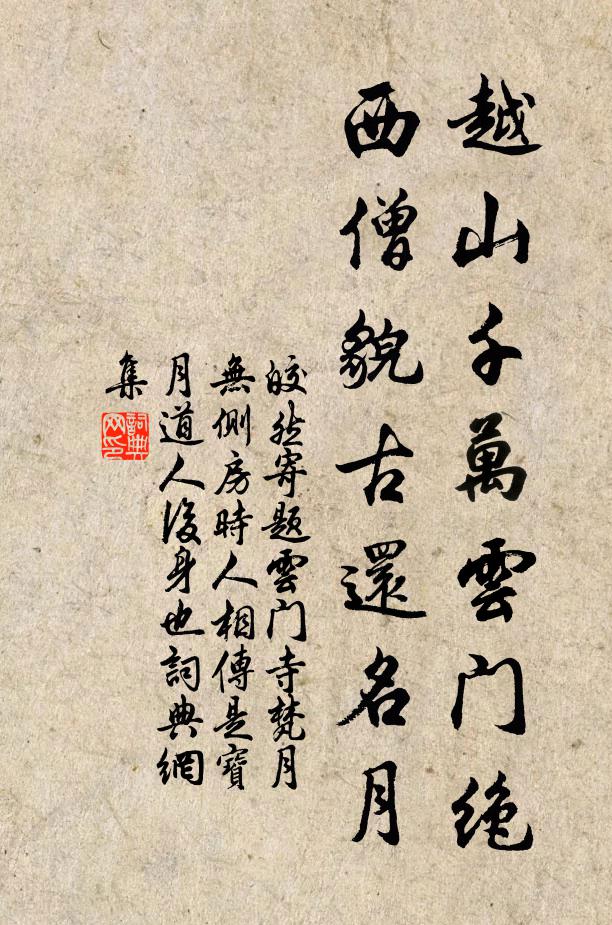 越山千萬雲门绝
西僧貌古還名月
皎然寄题雲门寺梵月
無侧房時人相傳是寶
月道人後身也詞典網
集
詞典
网印